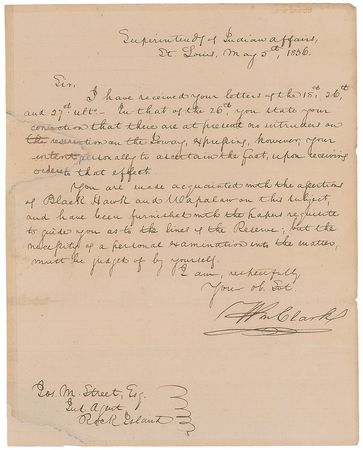 Superintendy of Indian Affairs,
St. Louis, May 5th, 1836.
Sir,
I have received your letters of the 15th, 26th
and 27th ulto. In that of the 26th, you state your
conviction that there are at present no intruders on
the reservation on the Ioway, expressing, however, your
intent personally to ascertain the fact, upon receiving
orders to that effect.
You are made acquainted with the assertions
of Black Hawk and Wapalaw on this subject,
and have been furnished with the papers requisite
to guide you as to the lines of the Reserve; but the
necessity of a personal examination into the matter,
must be judged of by yourself.
I am, respectfully,
Your ob. Svt.
Wm Clark
Jos. M. Street, Esq.
Ind. Agent
Rock Island